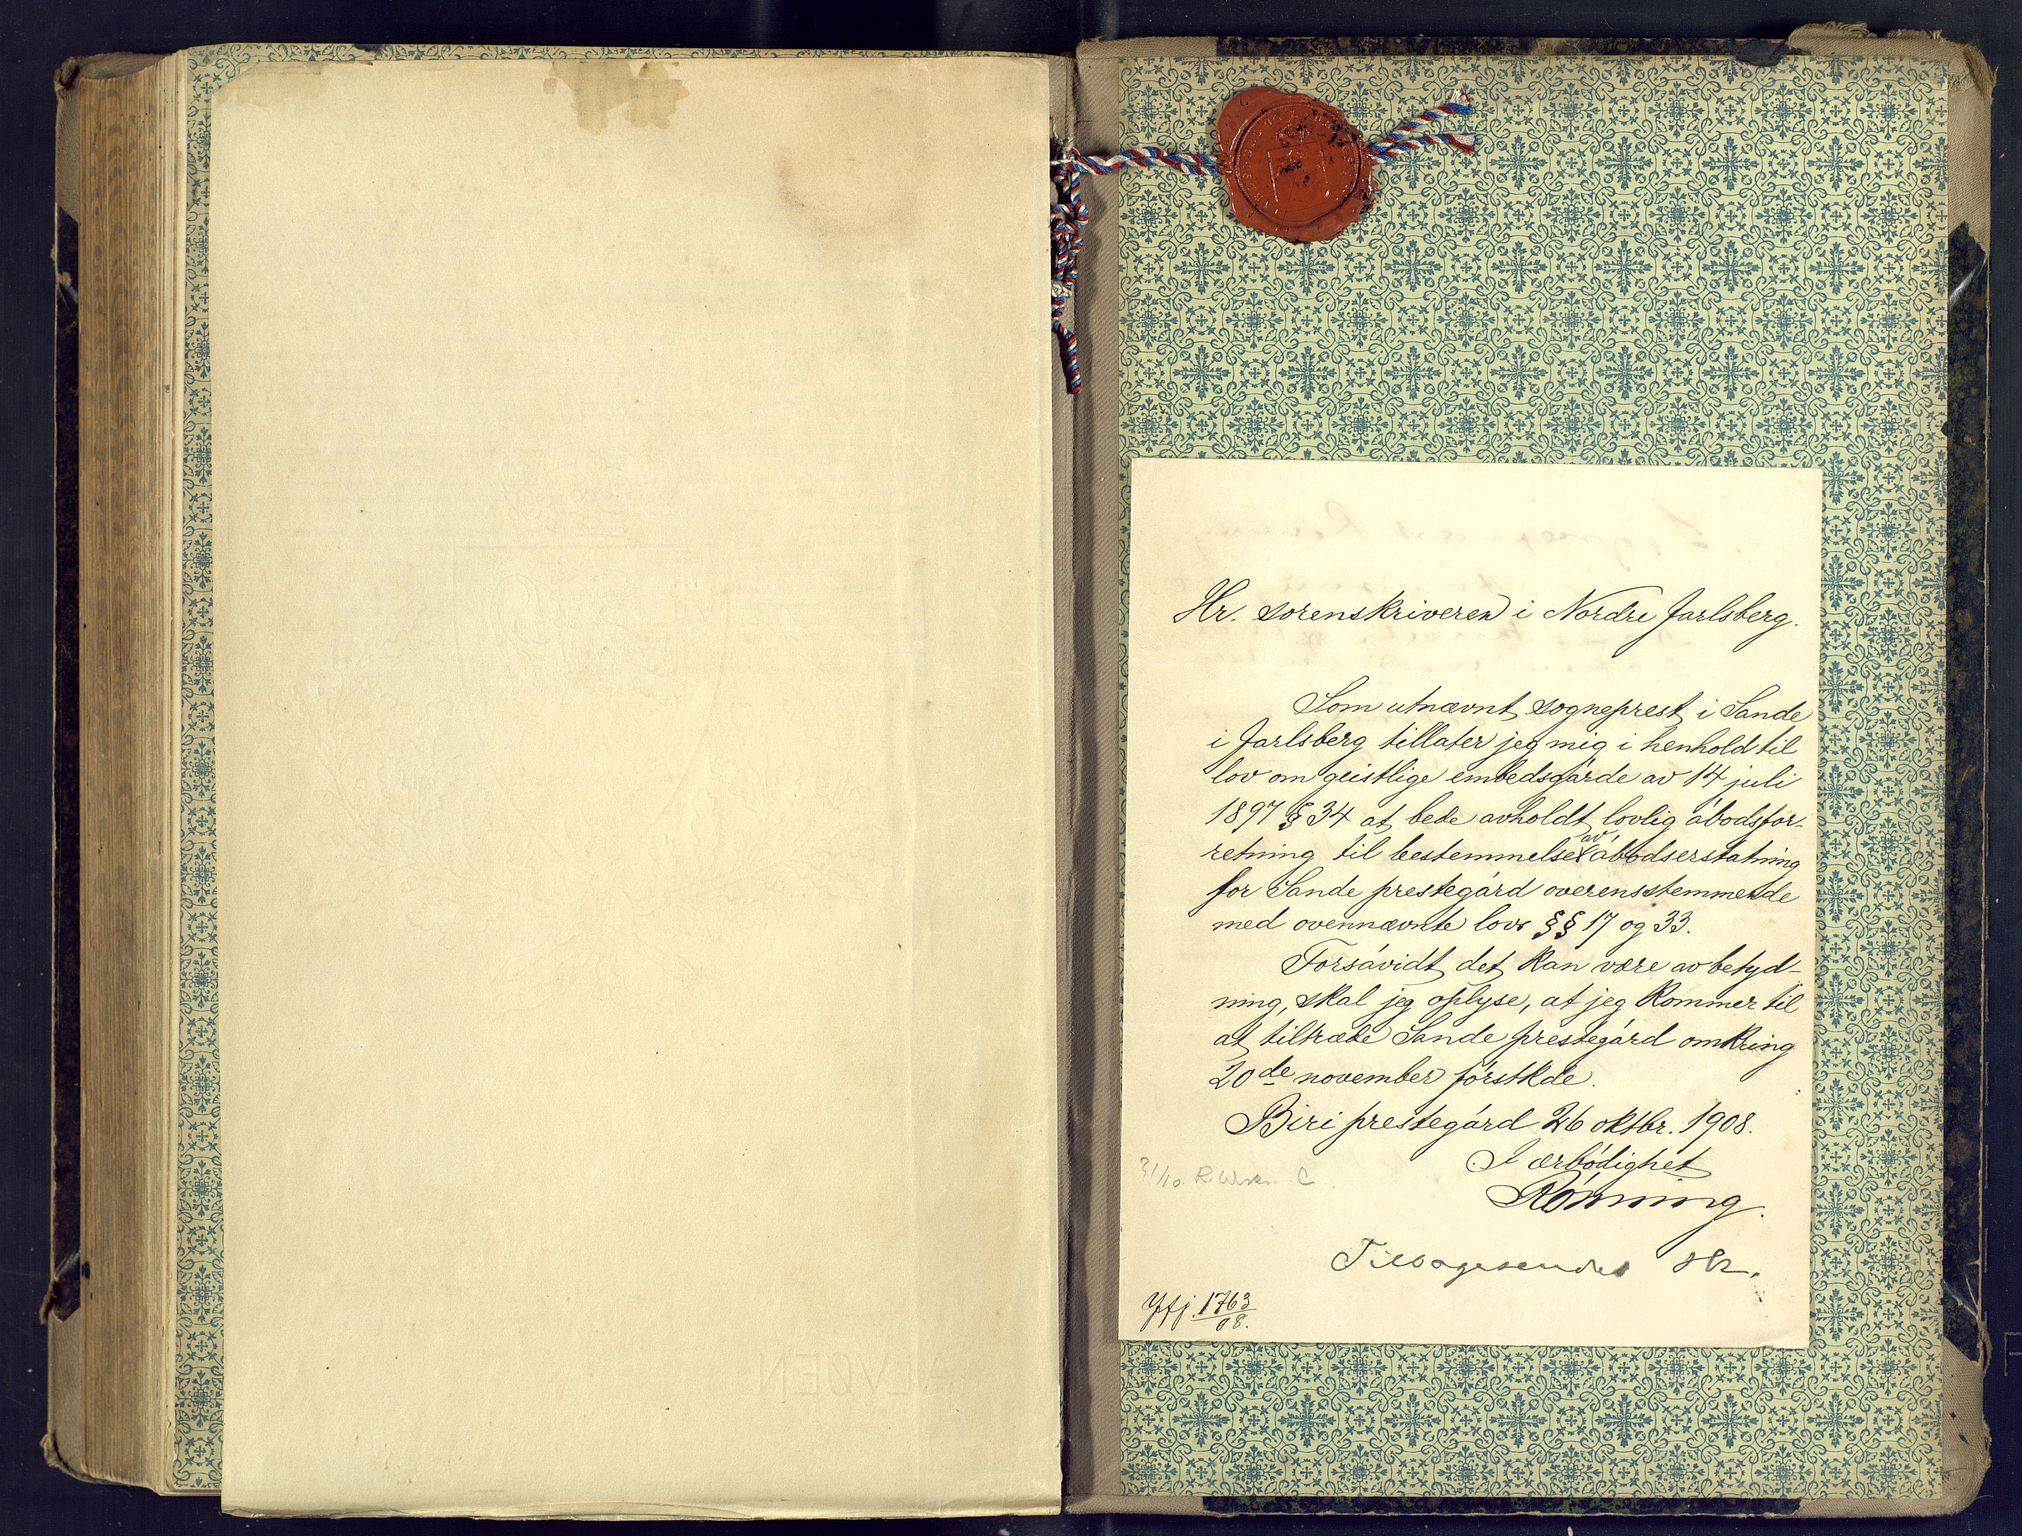 Hr. sorenskriveren i Nordre Jarlsberg.
Som utnævnt sogneprest i Sande
i Jarlsberg tillater jeg mig i henhold til
lov om geistlige embedsgårde av 14 juli
1897 § 34 at bede avholdt lovlig åbodsfor-
retning til bestemmelse av åbodserstatning
for Sande prestegård overensstemmende
med ovennævnte lovs §§ 17 og 33.
Forsåvidt det kan være av betyd-
ning, skal jeg oplyse, at jeg kommer til
at tiltræde Sande prestegård omkring
20de november førstkde.
Biri prestegård 26 oktbr. 1908.
I ærbødighet
Rönning.
31/10.
Tilbagesendes
1763/08.